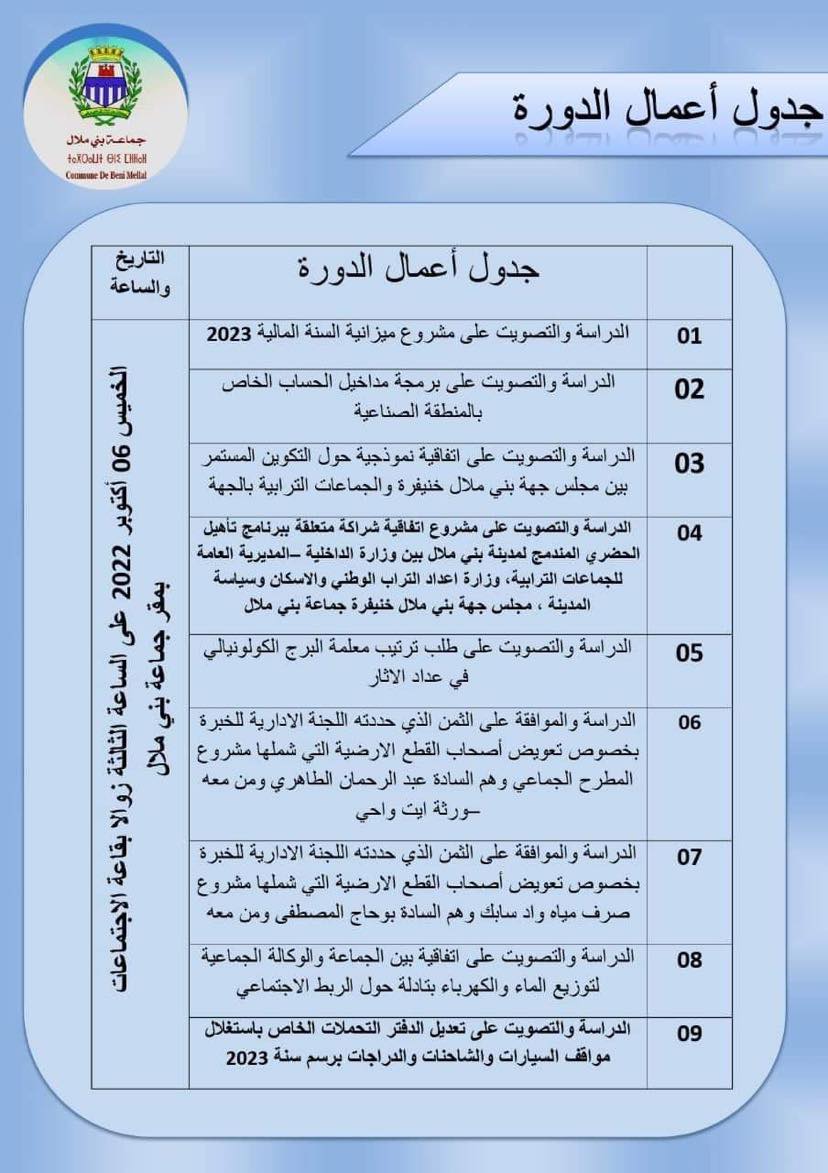 جماعة بني ملال
ⵜⴰⴳⵔⴰⵡⵜ ⴱⵏⵉ ⵎⵍⵍⴰⵍ
Commune De Beni Mellal
جدول أعمال الدورة
جدول أعمال الدورة
التاريخ
والساعة
01
الدراسة والتصويت على مشروع ميزانية السنة المالية 2023
02
الدراسة والتصويت على برمجة مداخيل الحساب الخاص
بالمنطقة الصناعية
03
الدراسة والتصويت على اتفاقية نموذجية حول التكوين المستمر
بين مجلس جهة بني ملال خنيفرة والجماعات الترابية بالجهة
04
الدراسة والتصويت على مشروع اتفاقية شراكة متعلقة ببرنامج تأهيل
الحضري المندمج لمدينة بني ملال بين وزارة الداخلية –المديرية العامة
للجماعات الترابية، وزارة اعداد التراب الوطني والاسكان وسياسة
المدينة ، مجلس جهة بني ملال خنيفرة جماعة بني ملال
05
الدراسة والتصويت على طلب ترتيب معلمة البرج الكولونيالي
في عداد الاثار
06
الدراسة والموافقة على الثمن الذي حددته اللجنة الادارية للخبرة
بخصوص تعويض أصحاب القطع الارضية التي شملها مشروع
المطرح الجماعي وهم السادة عبد الرحمان الطاهري ومن معه
–ورثة ايت واحي
07
الدراسة والموافقة على الثمن الذي حددته اللجنة الادارية للخبرة
بخصوص تعويض أصحاب القطع الارضية التي شملها مشروع
صرف مياه واد سابك وهم السادة بوحاج المصطفى ومن معه
08
الدراسة والتصويت على اتفاقية بين الجماعة والوكالة الجماعية
لتوزيع الماء والكهرباء بتادلة حول الربط الاجتماعي
09
الدراسة والتصويت على تعديل الدفتر التحملات الخاص باستغلال
مواقف السيارات والشاحنات والدراجات برسم سنة 2023
الخميس 06 أكتوبر 2022 على الساعة الثالثة زوالا بقاعة الاجتماعات
بمقر جماعة بني ملال